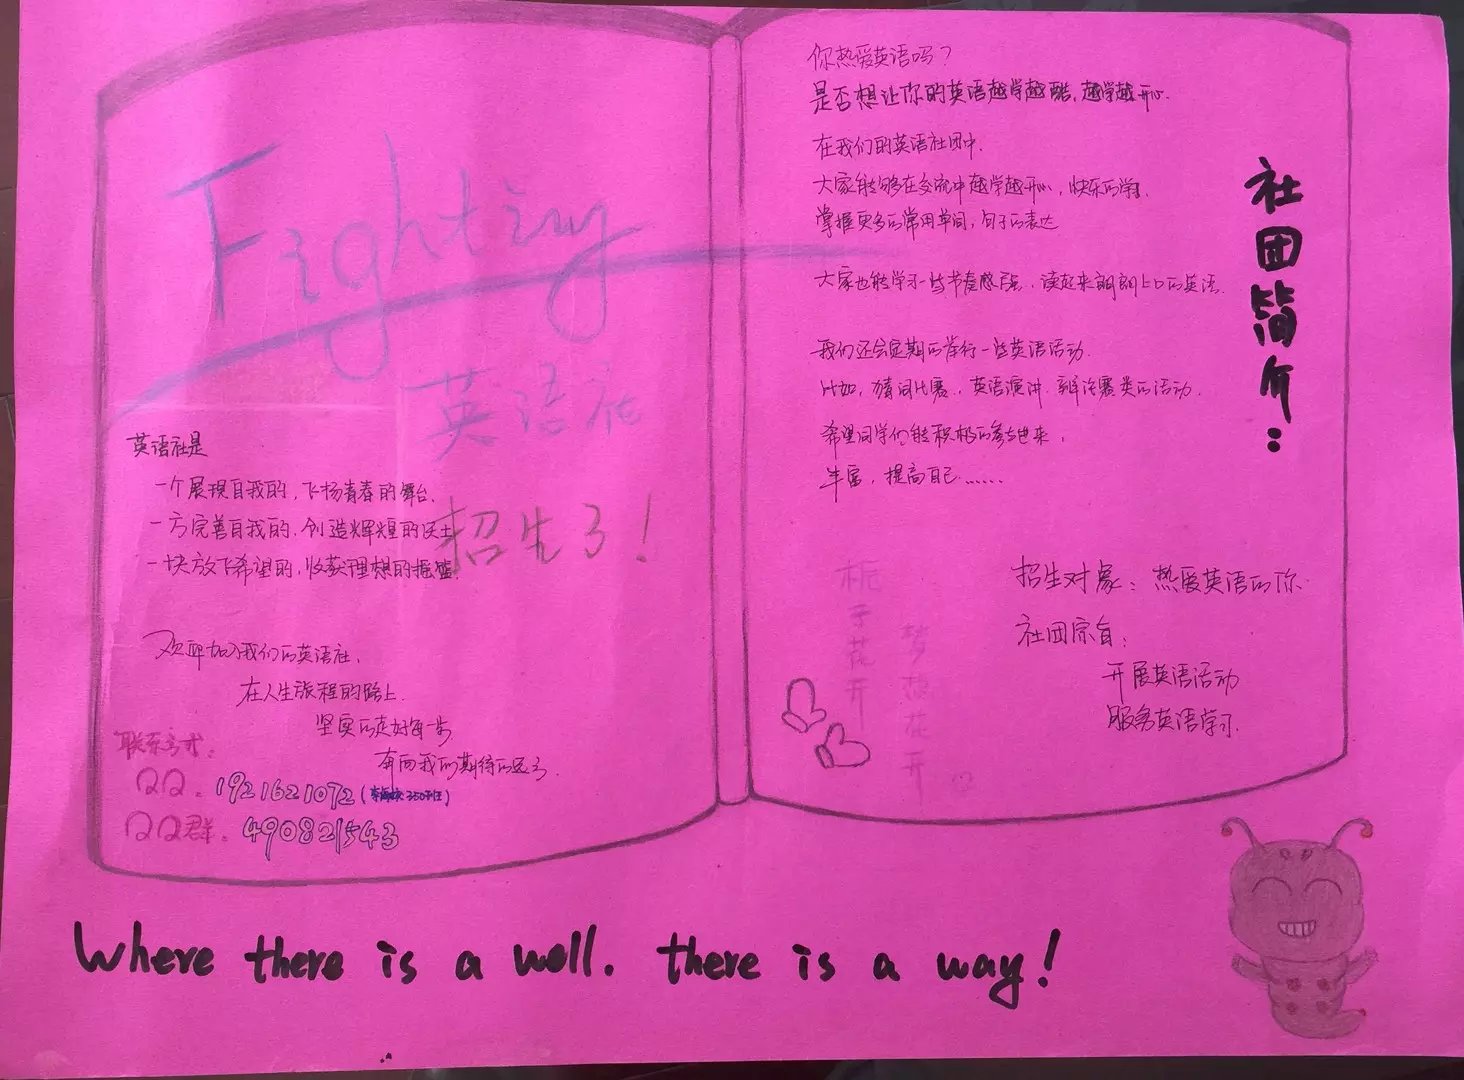 Fighting
英语社
招生了!
英语社是
一个展现自我的,飞扬青春的舞台、
一方完善自我的,创造辉煌的沃土
一块放飞希望的,收获理想的摇篮.
欢迎加入我们的英语社,
在人生旅程的路上
坚实的走好每一步
奔向我们期待的远方.
联系方式:
QQ. 1921621072
QQ群. 490821543
社团简介:
你热爱英语吗?
是否想让你的英语越学越酷,越学越开心.
在我们的英语社团中.
大家能够在交流中越学越开心,快乐的学.
掌握更多的常用单词,句子的表达
大家也能学习一些节奏感强,读起来朗朗上口的英语.
我们还会定期的举行一些英语活动.
比如,猜词比赛,英语演讲.辩论赛类的活动.
希望同学们能积极的参与进来,
丰富,提高自己......
招生对象:热爱英语的你
社团宗旨:
开展英语活动
服务英语学习.
栀子花开
梦想花开...
Where there is a woll. there is a way!